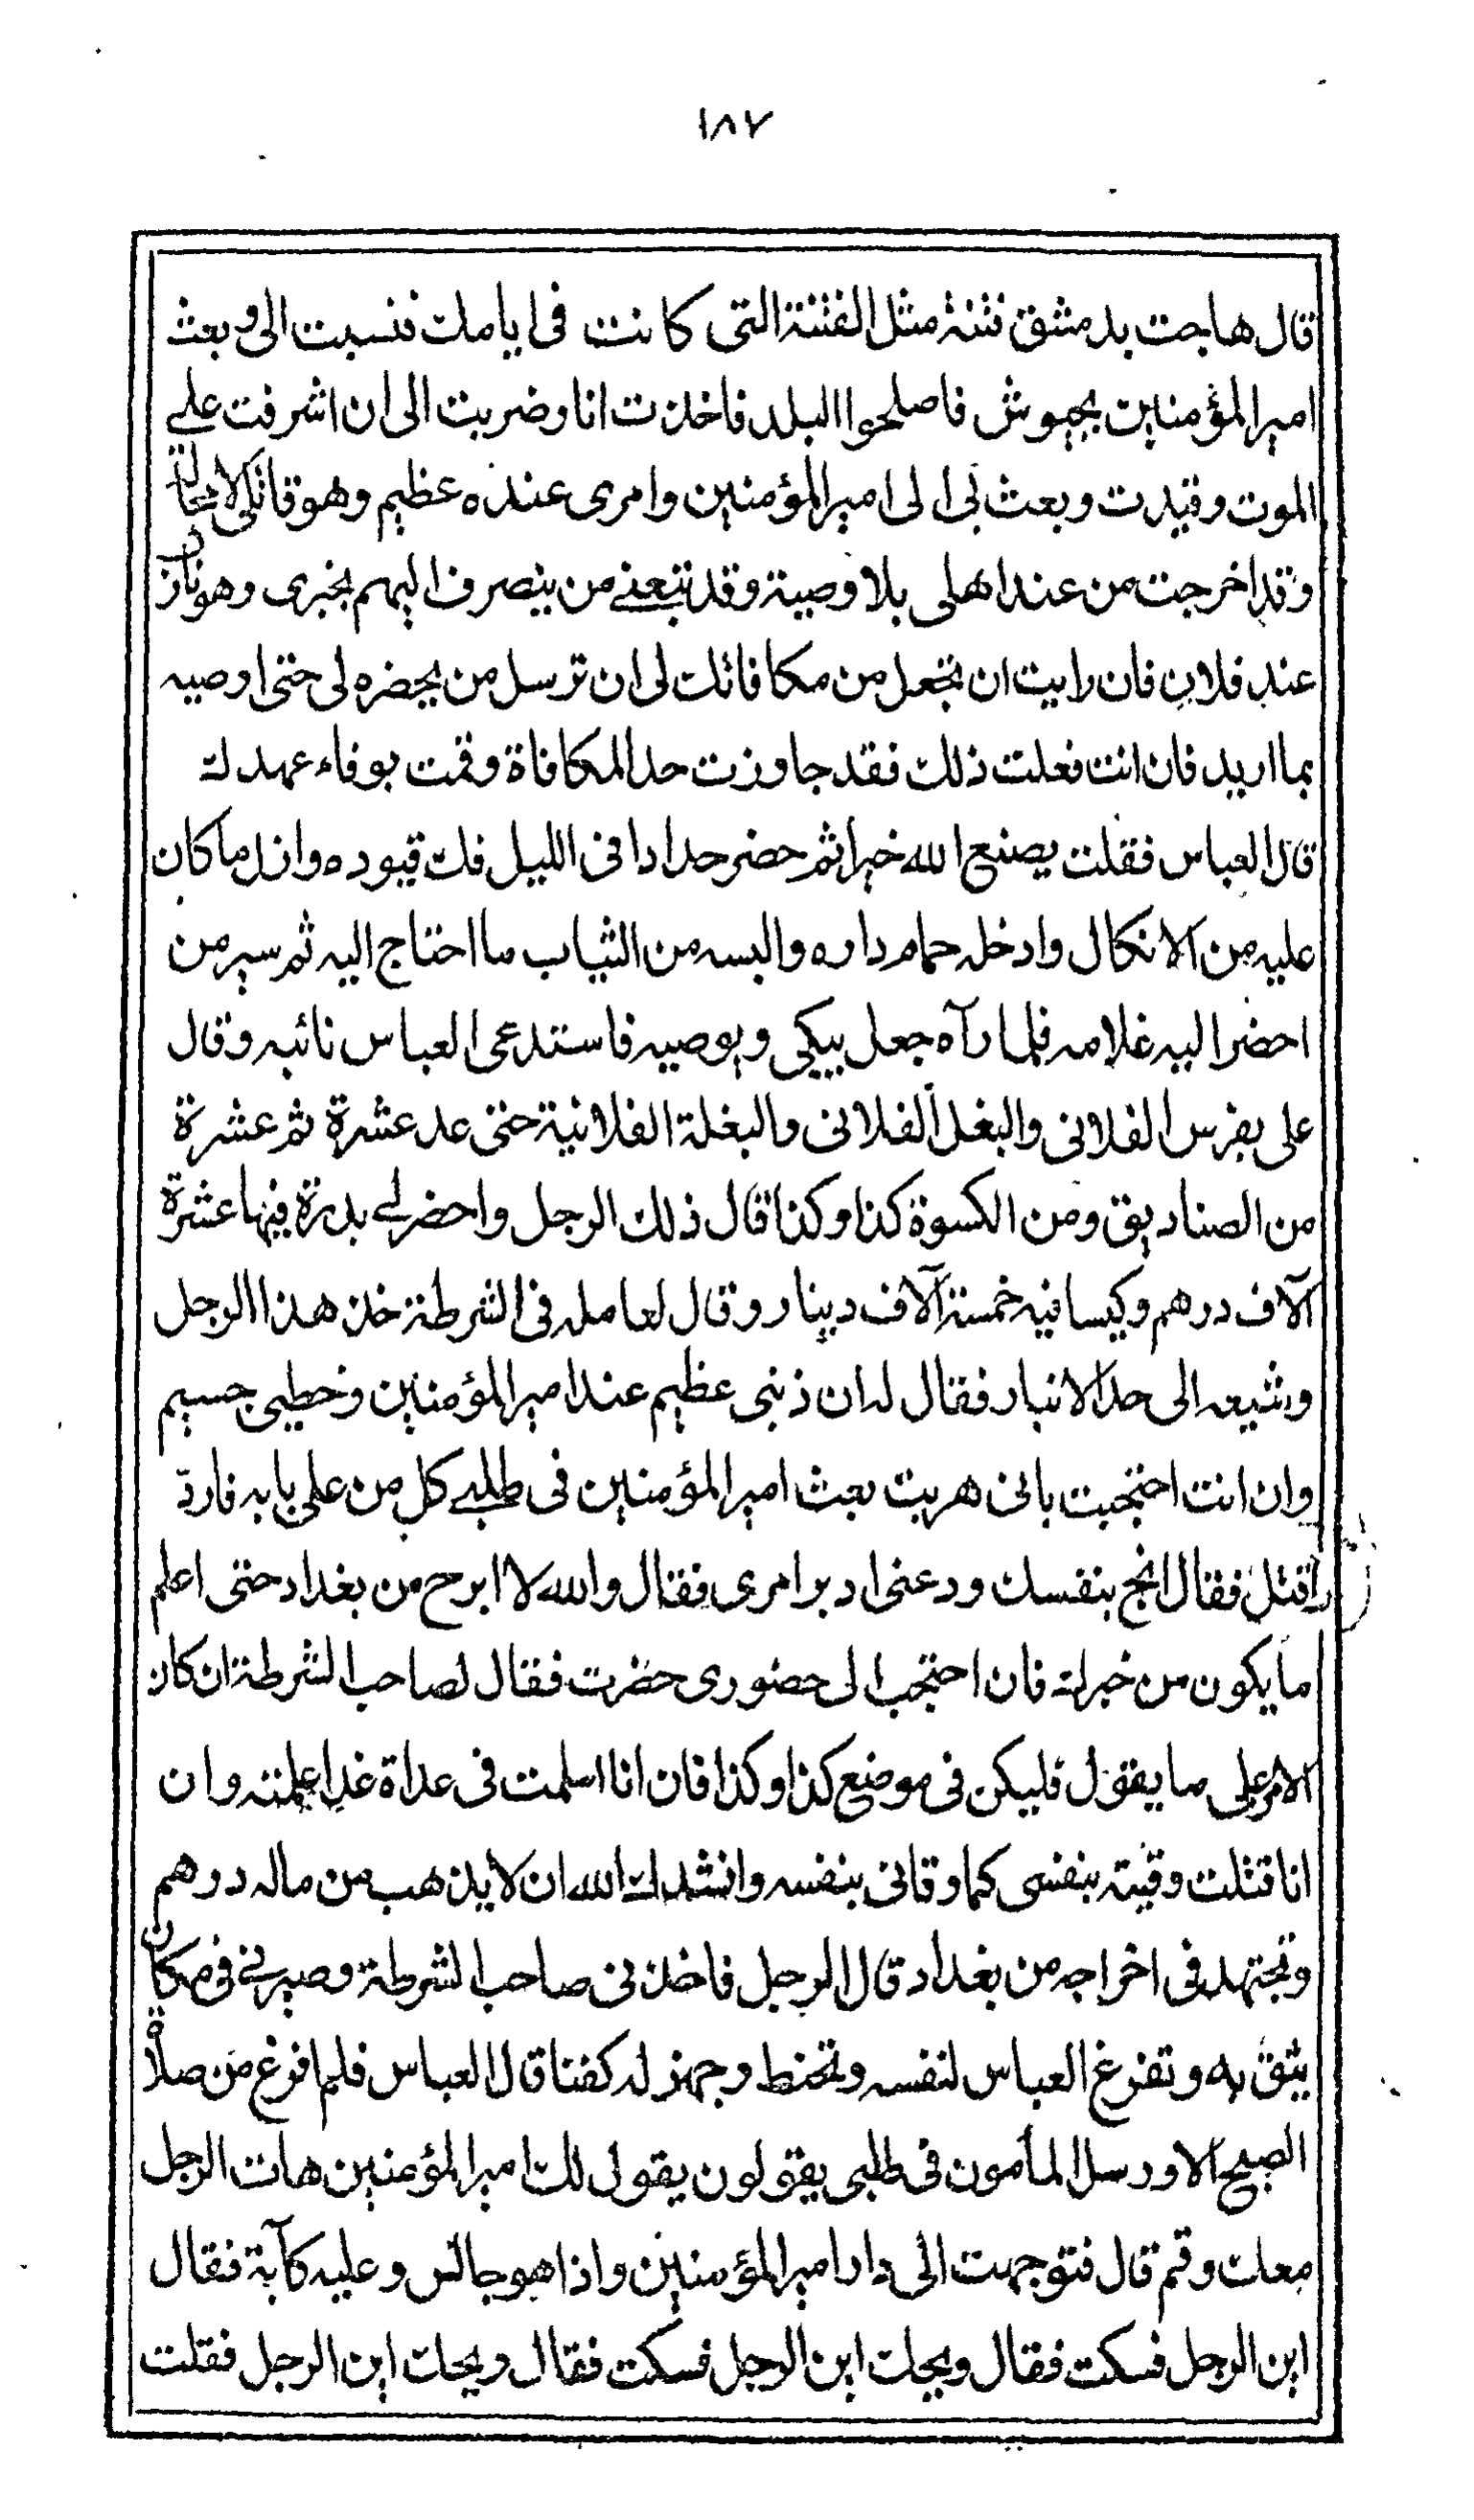 ١٨٧
قال هاجت بدمشق فتنة مثل الفتنة التى كانت فى ايامك فنسبت الى وبعث
امير المؤمنين بجيوش فاصلحوا البلد فاخذت انا وضربت الى ان اشرفت على
الموت وقيدت وبعث بى الى امير المؤمنين وامرى عنده عظيم وهو قاتلى لا محالة
وقد اخرجت من عند اهلى بلا وصية وقد تبعنى من ينصرف اليهم بخبرى وهو نازل
عند فلان فان رايت ان تجعل من مكافاتك لى ان ترسل من يحضره لى حتى اوصيه
بما اريد فان انت فعلت ذلك فقد جاوزت حد المكافاة وقمت بوفاء عهدك
قال العباس فقلت يصنع الله خيرا ثم حضر حدادا فى الليل فك قيوده وازل ما كان
عليه من الانكال وادخله حمام داره والبسه من الثياب ما احتاج اليه ثم سير من
احضر اليه غلامه فلما رآه جعل يبكى ويوصيه فاستدعى العباس نائبه وقال
على بفرس الفلانى والبغل الفلانى والبغلة الفلانية حتى عد عشرة ثم عشرة
من الصناديق ومن الكسوة كذا وكذا قال ذلك الرجل واحضر لى بدرة فيها عشرة
آلاف درهم وكيسا فيه خمسة آلاف دينار وقال لعامله فى الشرطة خذ هذا الرجل
وشيعه الى حد الانبار فقال له ان ذنبى عظيم عند امير المؤمنين وخطبى جسيم
وان انت احتججت بانى هربت بعث امير المؤمنين فى طلبى كل من على بابه فارد
واقتل فقال انج بنفسك ودعنى ادبر امرى فقال والله لا ابرح من بغداد حتى اعلم
ما يكون من خبرك فان احتجت الى حضورى حضرت فقال لصاحب الشرطة ان كان
الامر على ما يقول فليكن فى موضع كذا وكذا فان انا اسلمت فى عداة غد اعلمته وان
انا قتلت وقيته بنفسى كما وقانى بنفسه وانشدك الله ان لا يذهب من ماله درهم
وتجتهد فى اخراجه من بغداد قال الرجل فاخذنى صاحب الشرطة وصيرنى فى مكان
يثق به وتفرغ العباس لنفسه وتحنط وجهز له كفنا قال العباس فلم افرغ من صلاة
الصبح الا ورسل المأمون فى طلبى يقولون يقول لك امير المؤمنين هات الرجل
معك وقم قال فتوجهت الى دار امير المؤمنين واذا هو جالس وعليه كآبة فقال
اين الرجل فسكت فقال ويحك اين الرجل فسكت فقال ويحك اين الرجل فقلت